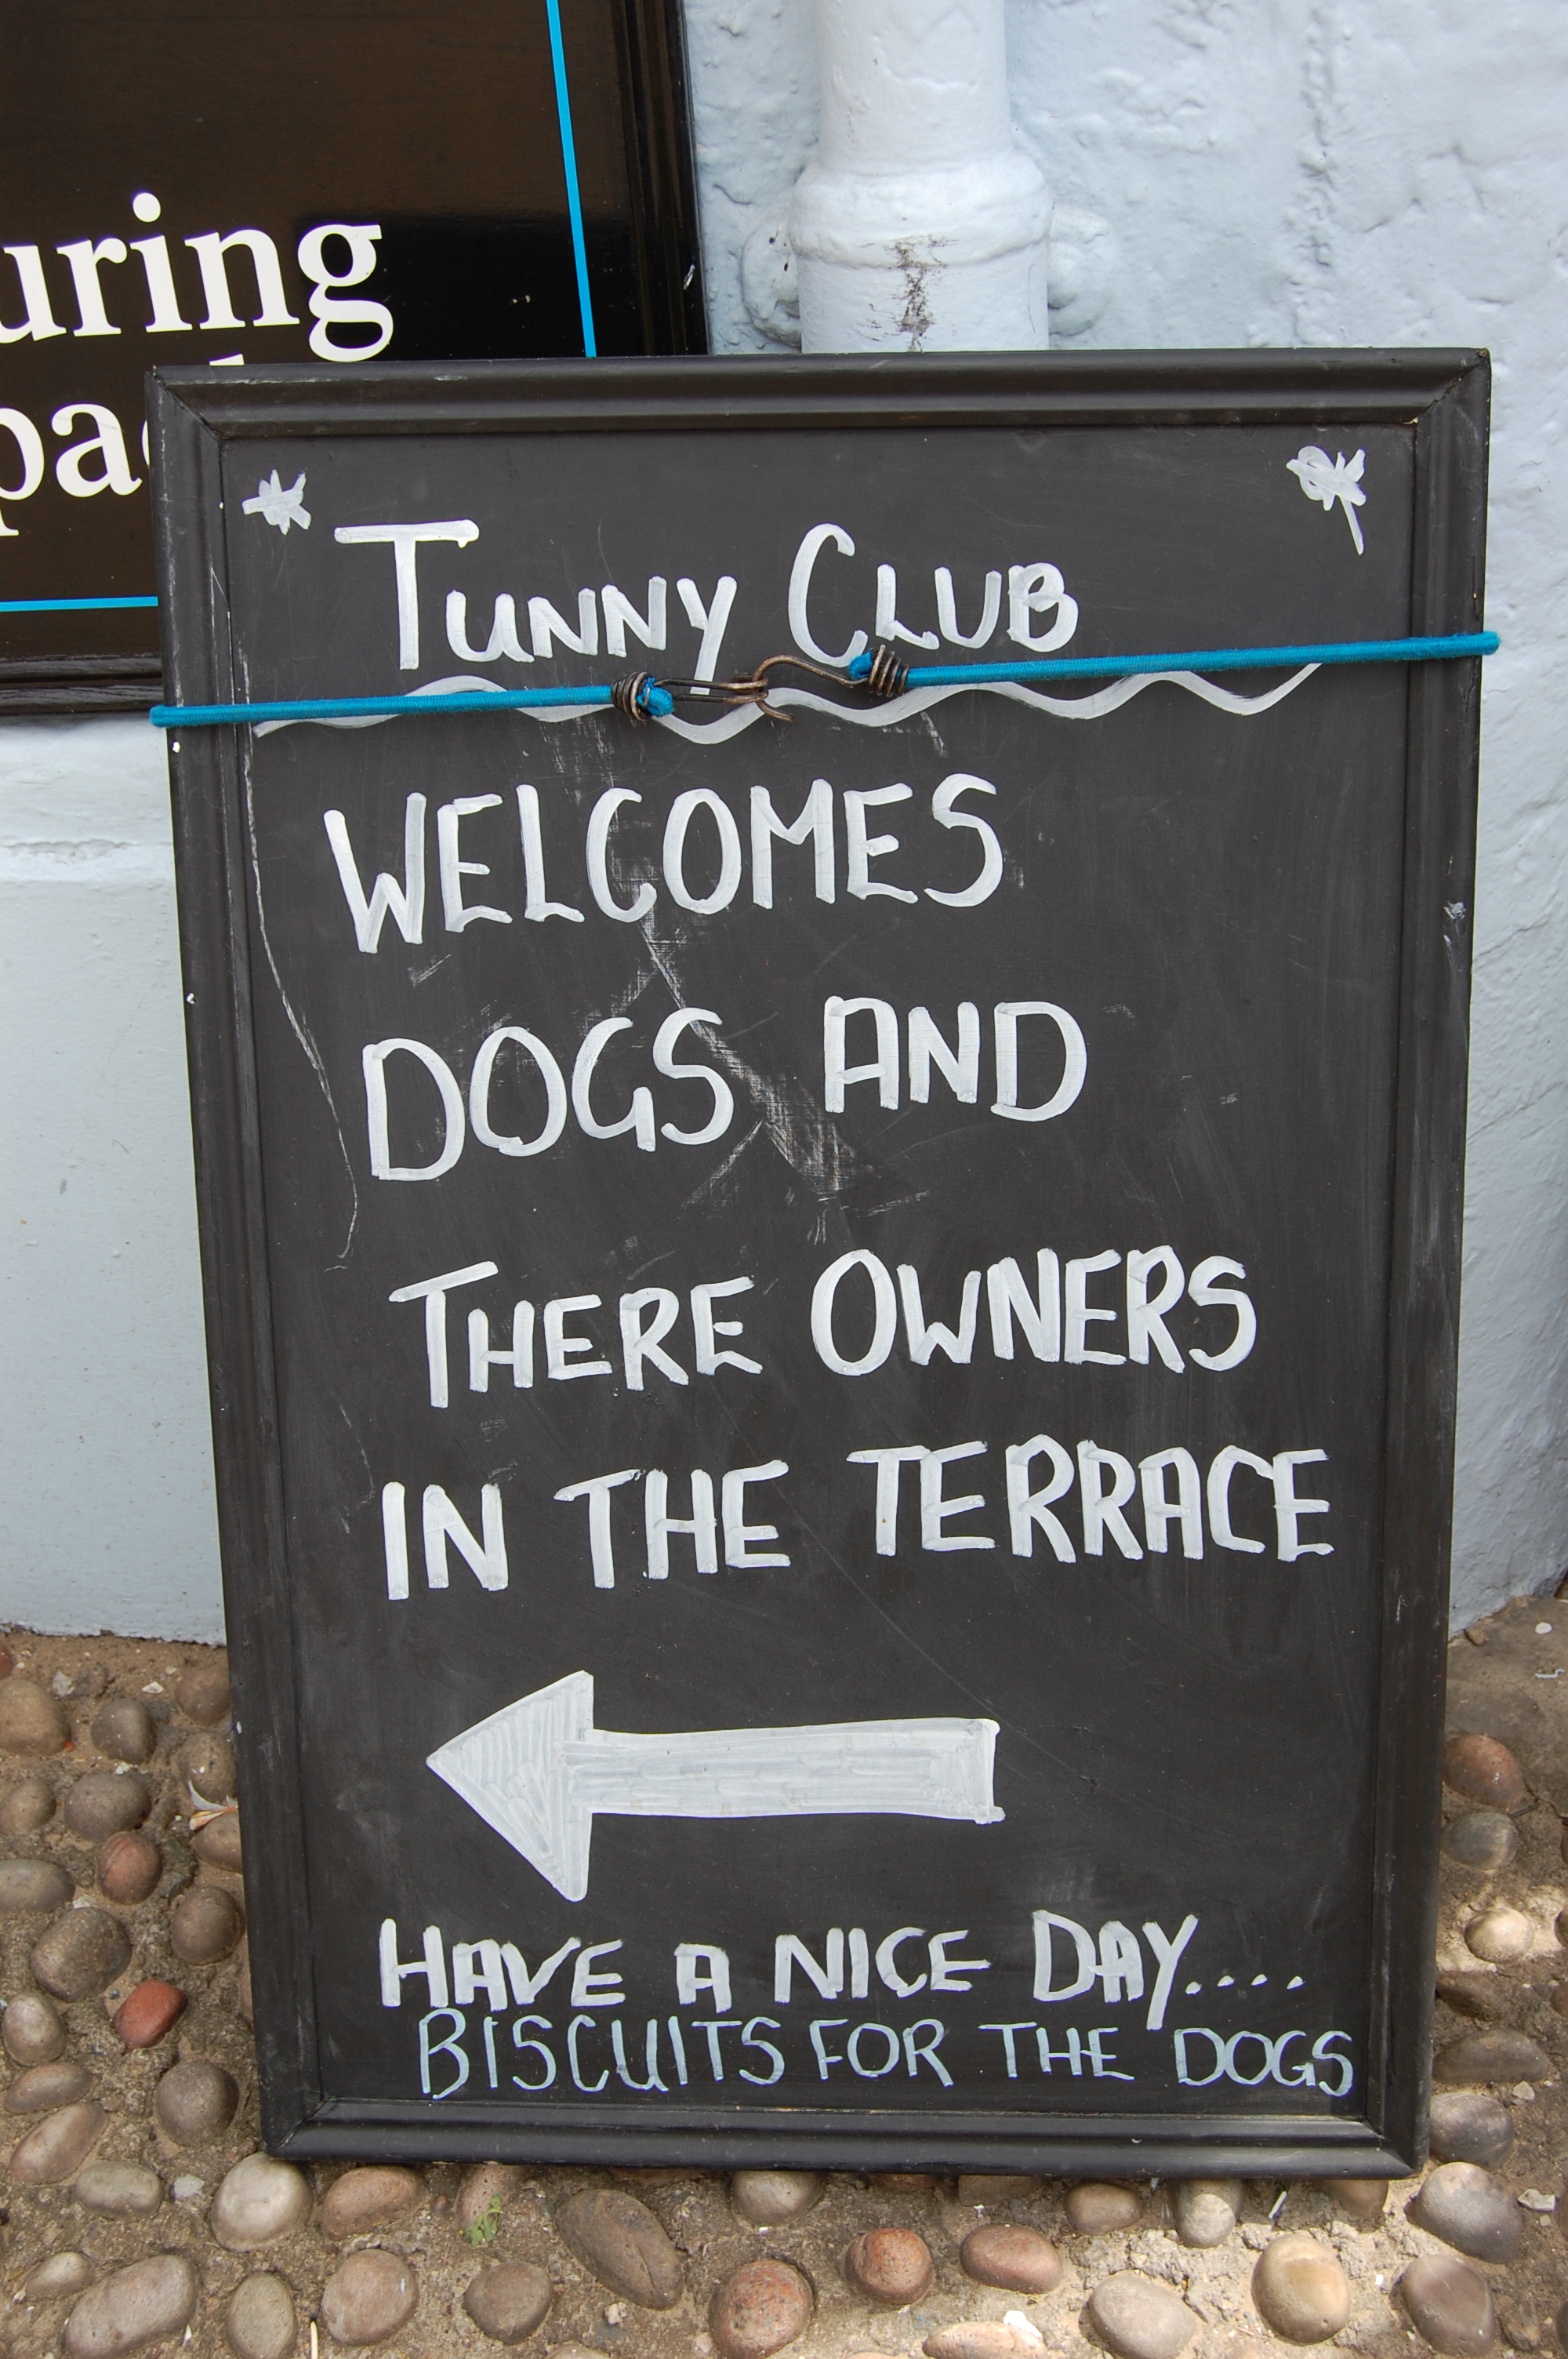 uring
pac
Tunny Club
WELCOMES
DOGS AND
THERE OWNERS
IN THE TERRACE
HAVE A NICE DAY....
BISCUITS FOR THE DOGS